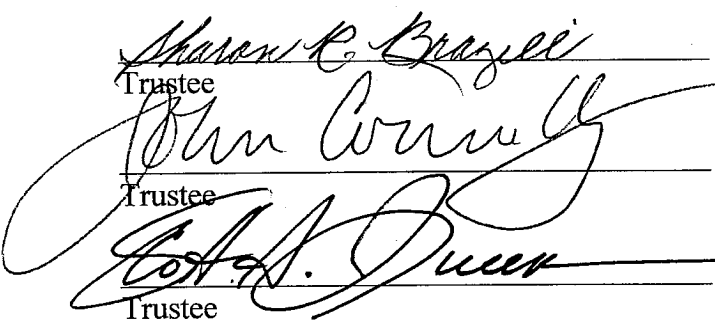 Sharon R. Brazell
Trustee
John Connolly
Trustee
Trustee